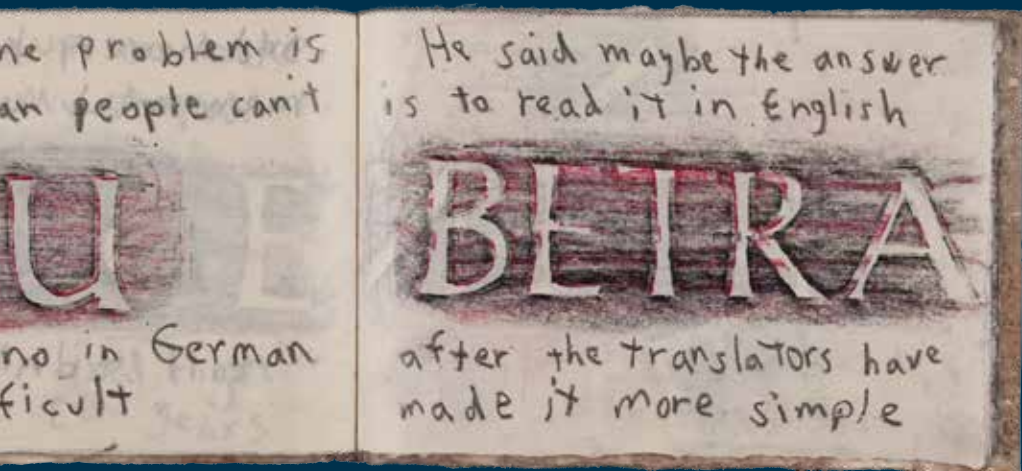 ne problem is
an people can't
U
no in German
ficult
He said maybe the answer
is to read it in English
BETRA
after the translators have
made it more simple